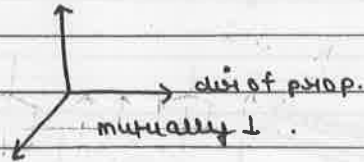 dirⁿ of prop.
mutually ⊥ .